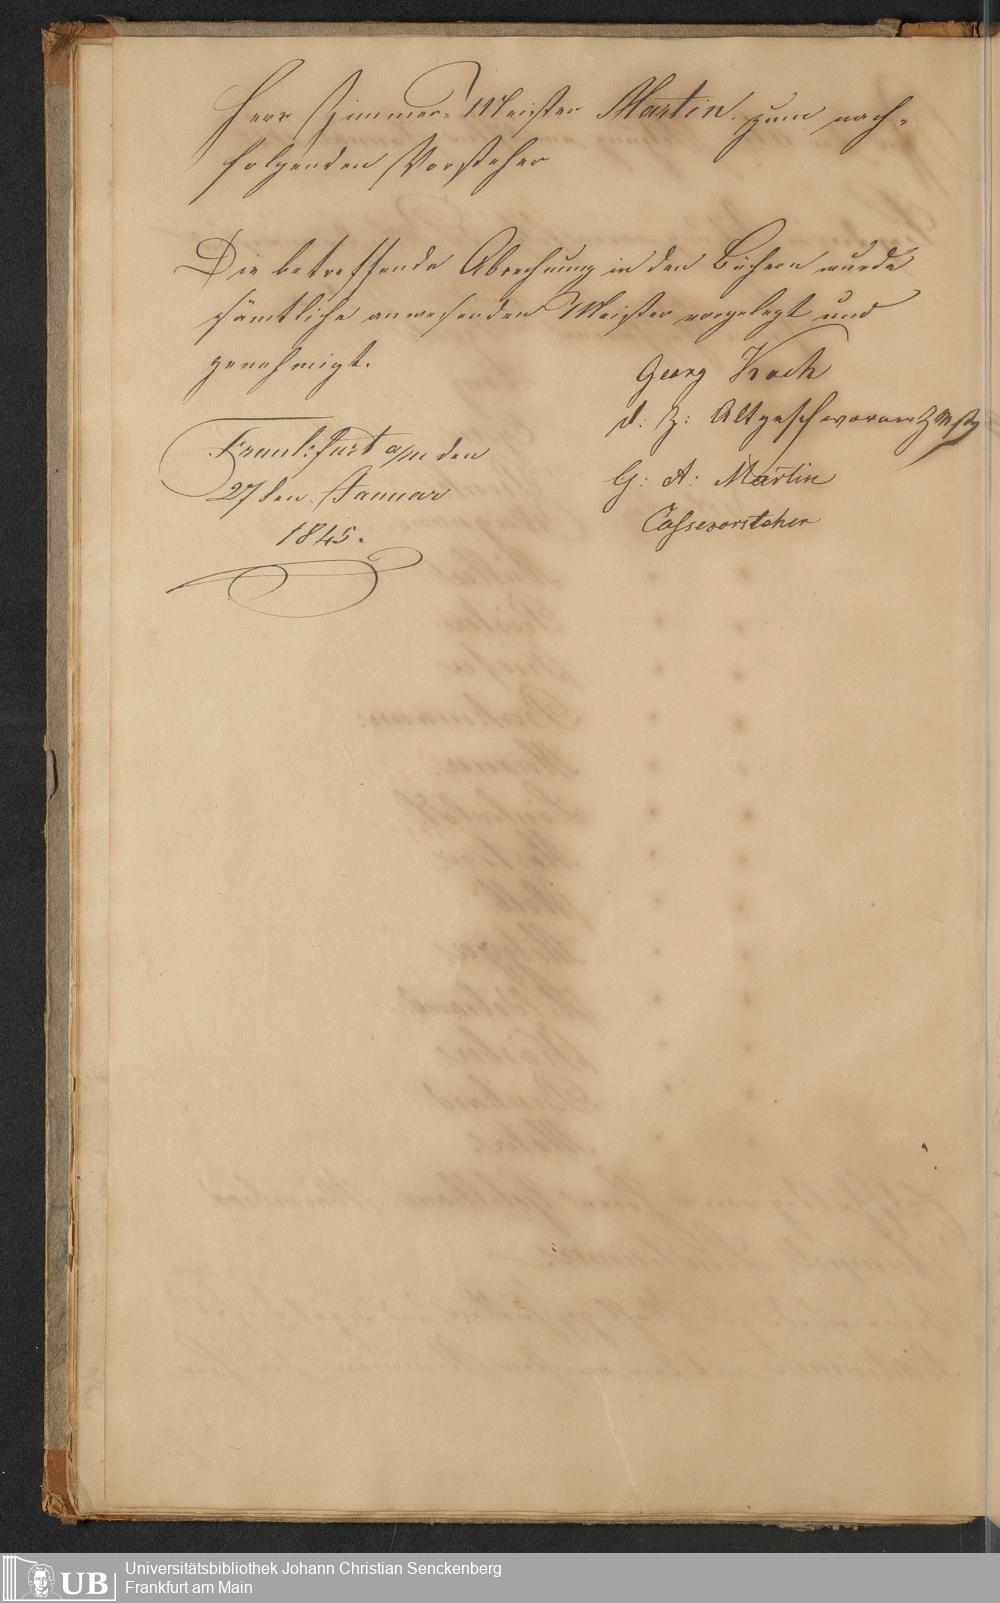 Herr Zimmer-Meister Martin. zum nach-
folgenden Vorsteher
Die betreffende Abrechnung in den Büchern wurde
sämtliche anwesenden Meister vorgelegt und
genehmigt.
Georg Koch
d: Z: Altgeschworner
Frankfurt a/m den
G: A: Martin
27 den Januar
Cassevorsteher
1845.
Universitätsbibliothek Johann Christian Senckenberg
Frankfurt am Main
UB